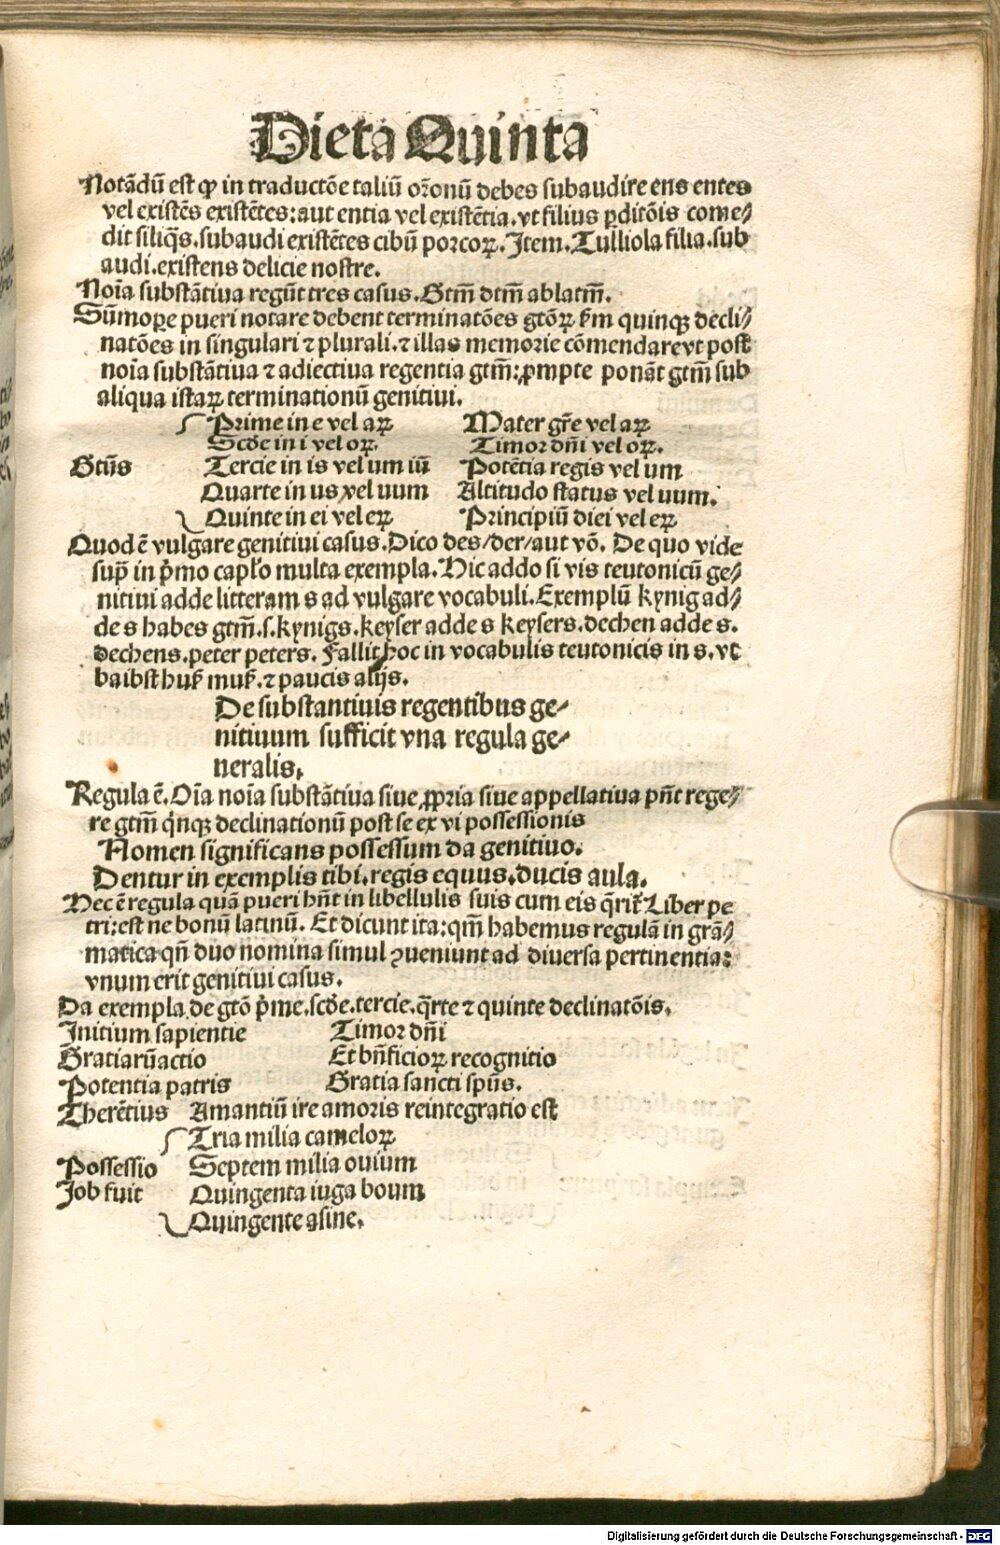 Dieta Quinta
Notādū est ꝙ in traductōe taliū oꝛ̄onū debes subaudire ens entes
vel existēs existētes: aut entia vel existētia. vt filius ꝑditōis come⸗
dit siliq̄s. subaudi existētes cibū porcoꝝ. Item. Tulliola filia. sub
audi. existens delicie nostre.
Noīa substātiua regūt tres casus. Gtm̄ dtm̄ ablatm̄.
Sūmoꝑe pueri notare debent terminatōes gtōꝝ ẜm quinqꝫ decli⸗
natōes in singulari ⁊ plurali. ⁊ illas memorie cōmendare vt post
noīa substātiua ⁊ adiectiua regentia gtm̄: ꝓmpte ponāt gtm̄ sub
aliqua istaꝝ terminationū genitiui.
Prime in e vel aꝝ Mater gr̄e vel aꝝ
Scd̄e in i vel oꝝ. Timor dn̄i vel oꝝ.
Gtiūs Tercie in is vel um iū Potētia regis vel um
Quarte in us vel uum Altitudo status vel uum.
Quinte in ei vel eꝝ Principiū diei vel eꝝ
Quod ē vulgare genitiui casus. Dico des/der/aut vō. De quo vide
sup̄ in p̄mo capl̄o multa exempla. Hic addo si vis teutonicū ge⸗
nitiui adde litteram s ad vulgare vocabuli. Exemplū kynig ad⸗
de s habes gtm̄. s. kynigs. keyser adde s keysers. dechen adde s.
dechens. peter peters. Fallit hoc in vocabulis teutonicis in s. vt
baibst huß muß. ⁊ paucis alijs.
De substantiuis regentibus ge⸗
nitiuum sufficit vna regula ge⸗
neralis.
Regula ē. Oīa noīa substātiua siue ꝓpria siue appellatiua pn̄t rege⸗
re gtm̄ q̄nqꝫ declinationū post se ex vi possessionis
Nomen significans possessum da genitiuo.
Dentur in exemplis tibi. regis equus. ducis aula.
Hec ē regula quā pueri hn̄t in libellulis suis cum eis q̄rit̄ Liber pe
tri: est ne bonū latinū. Et dicunt ita: qm̄ habemus regulā in grā⸗
matica qn̄ duo nomina simul ꝯueniunt ad diuersa pertinentia:
vnum erit genitiui casus.
Da exempla de gtō p̄me. scd̄e. tercie. q̄rte ⁊ quinte declinatōis.
Initium sapientie Timor dn̄i
Gratiarū actio Et bn̄ficioꝝ recognitio
Potentia patris Gratia sancti spūs.
Therētius Amantiū ire amoris reintegratio est
Tria milia cameloꝝ
Possessio Septem milia ouium
Job fuit Quingenta iuga boum
Quingente asine.
Digitalisierung gefördert durch die Deutsche Forschungsgemeinschaft - DFG